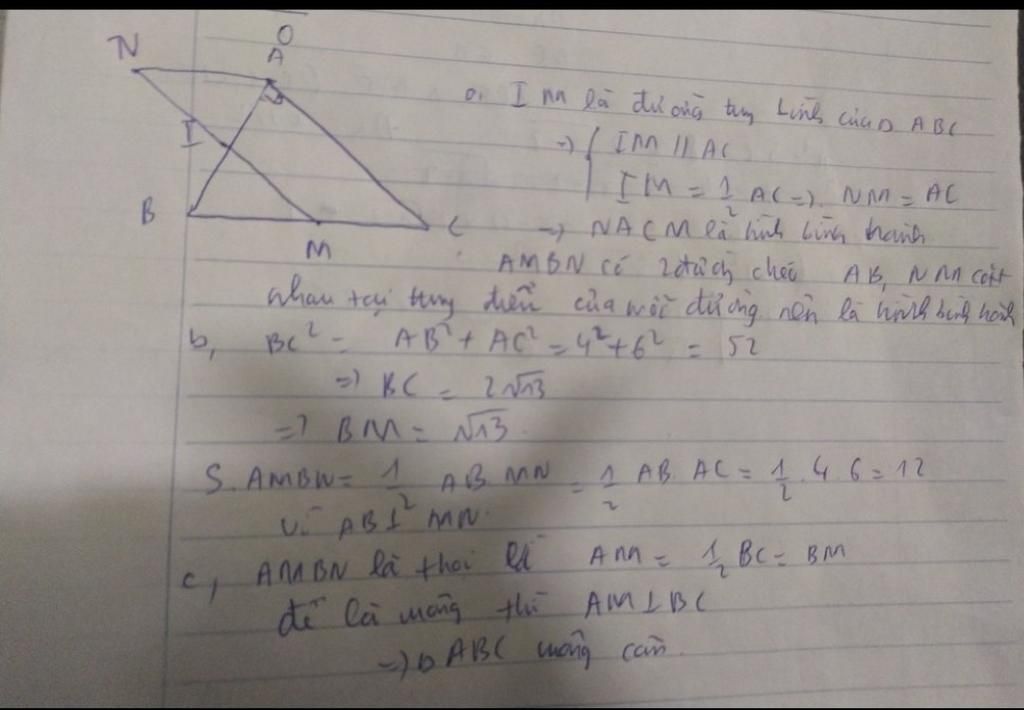 O
N A
I
B M C
a. IM là đường trung bình của Δ ABC
=> IM // AC
IM = 1/2 AC => NM = AC
=> NACM là hình bình hành
AMBN có 2 đường chéo AB, NM cắt
nhau tại trung điểm của mỗi đường nên là hình bình hành
b, BC² = AB² + AC² = 4² + 6² = 52
=> BC = 2√13
=> BM = √13
S.AMBN = 1/2 AB.MN = 1/2 AB.AC = 1/2 .4.6 = 12
vì AB ⊥ MN.
c, AMBN là thoi AM = 1/2 BC = BM
để là vuông thì AM ⊥ BC
=> Δ ABC vuông cân.